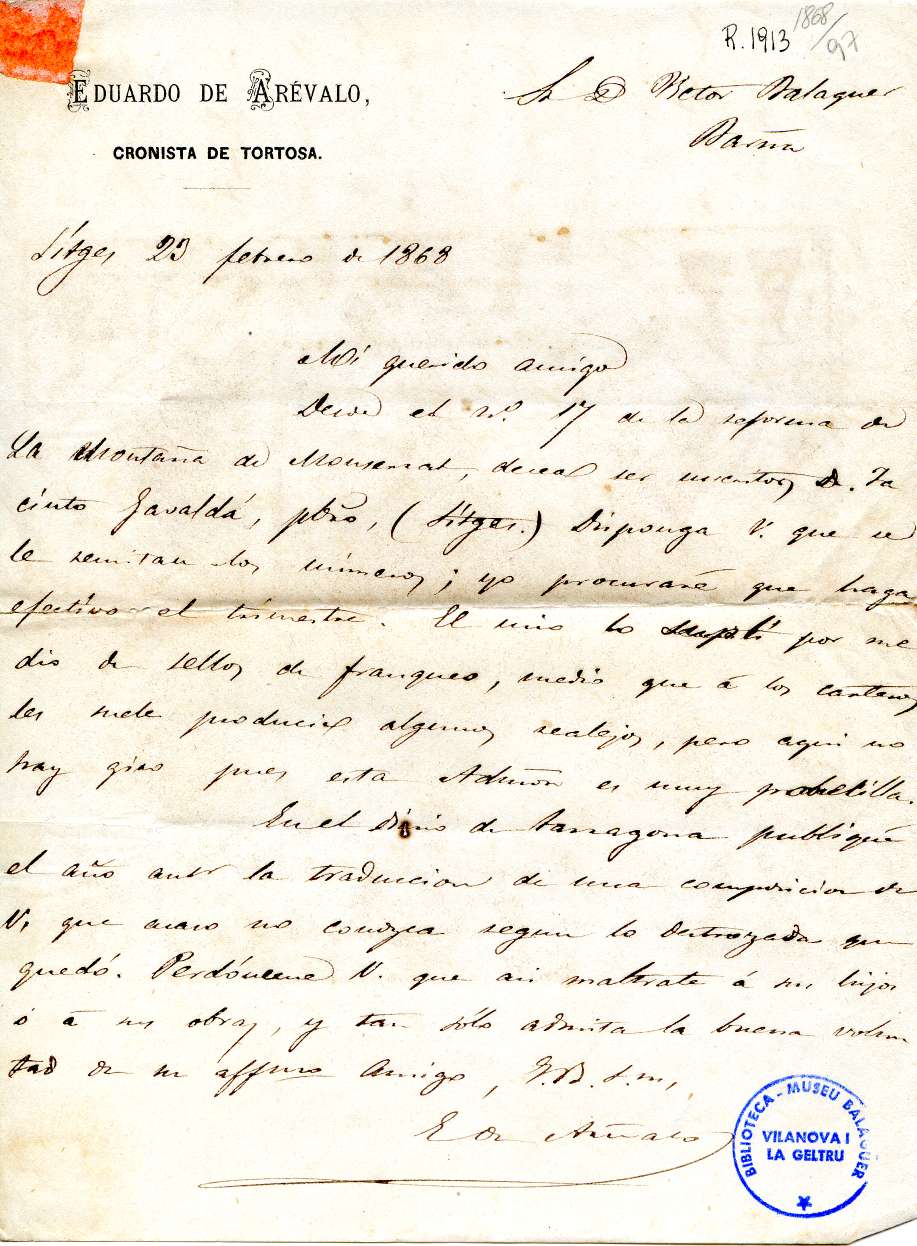 R. 1913 1868/97
EDUARDO DE ARÉVALO,
CRONISTA DE TORTOSA.
Sr D Victor Balaguer
Barña
Sitges 23 febrero de 1868
Mi querido amigo
Desde el nº. 17 de la reforma de
La Montaña de Monserrat, desea ser suscritor D. Ja
cinto Gavaldá, pbro, (Sitges.) Disponga V. que se
le remitan los números; yo procuraré que haga
efectivo el trimestre. El mio lo por me
dio de sellos de franqueo, medio que á los carteros
les suele producir algunos realejos, pero aqui no
hay giro pues esta Admon es muy pobretilla.
En el Diario de Tarragona publiqué
el año antr la traduccion de una composicion de
V. que acaso no conozca segun lo destrozada que
quedó. Perdóneme V. que asi maltrate á sus hijos
ó á sus obras, y tan sólo admita la buena volun
tad de su affmo Amigo, Q.B.s.m,
E de Arévalo
BIBLIOTECA - MUSEU BALAGUER
VILANOVA I
LA GELTRU